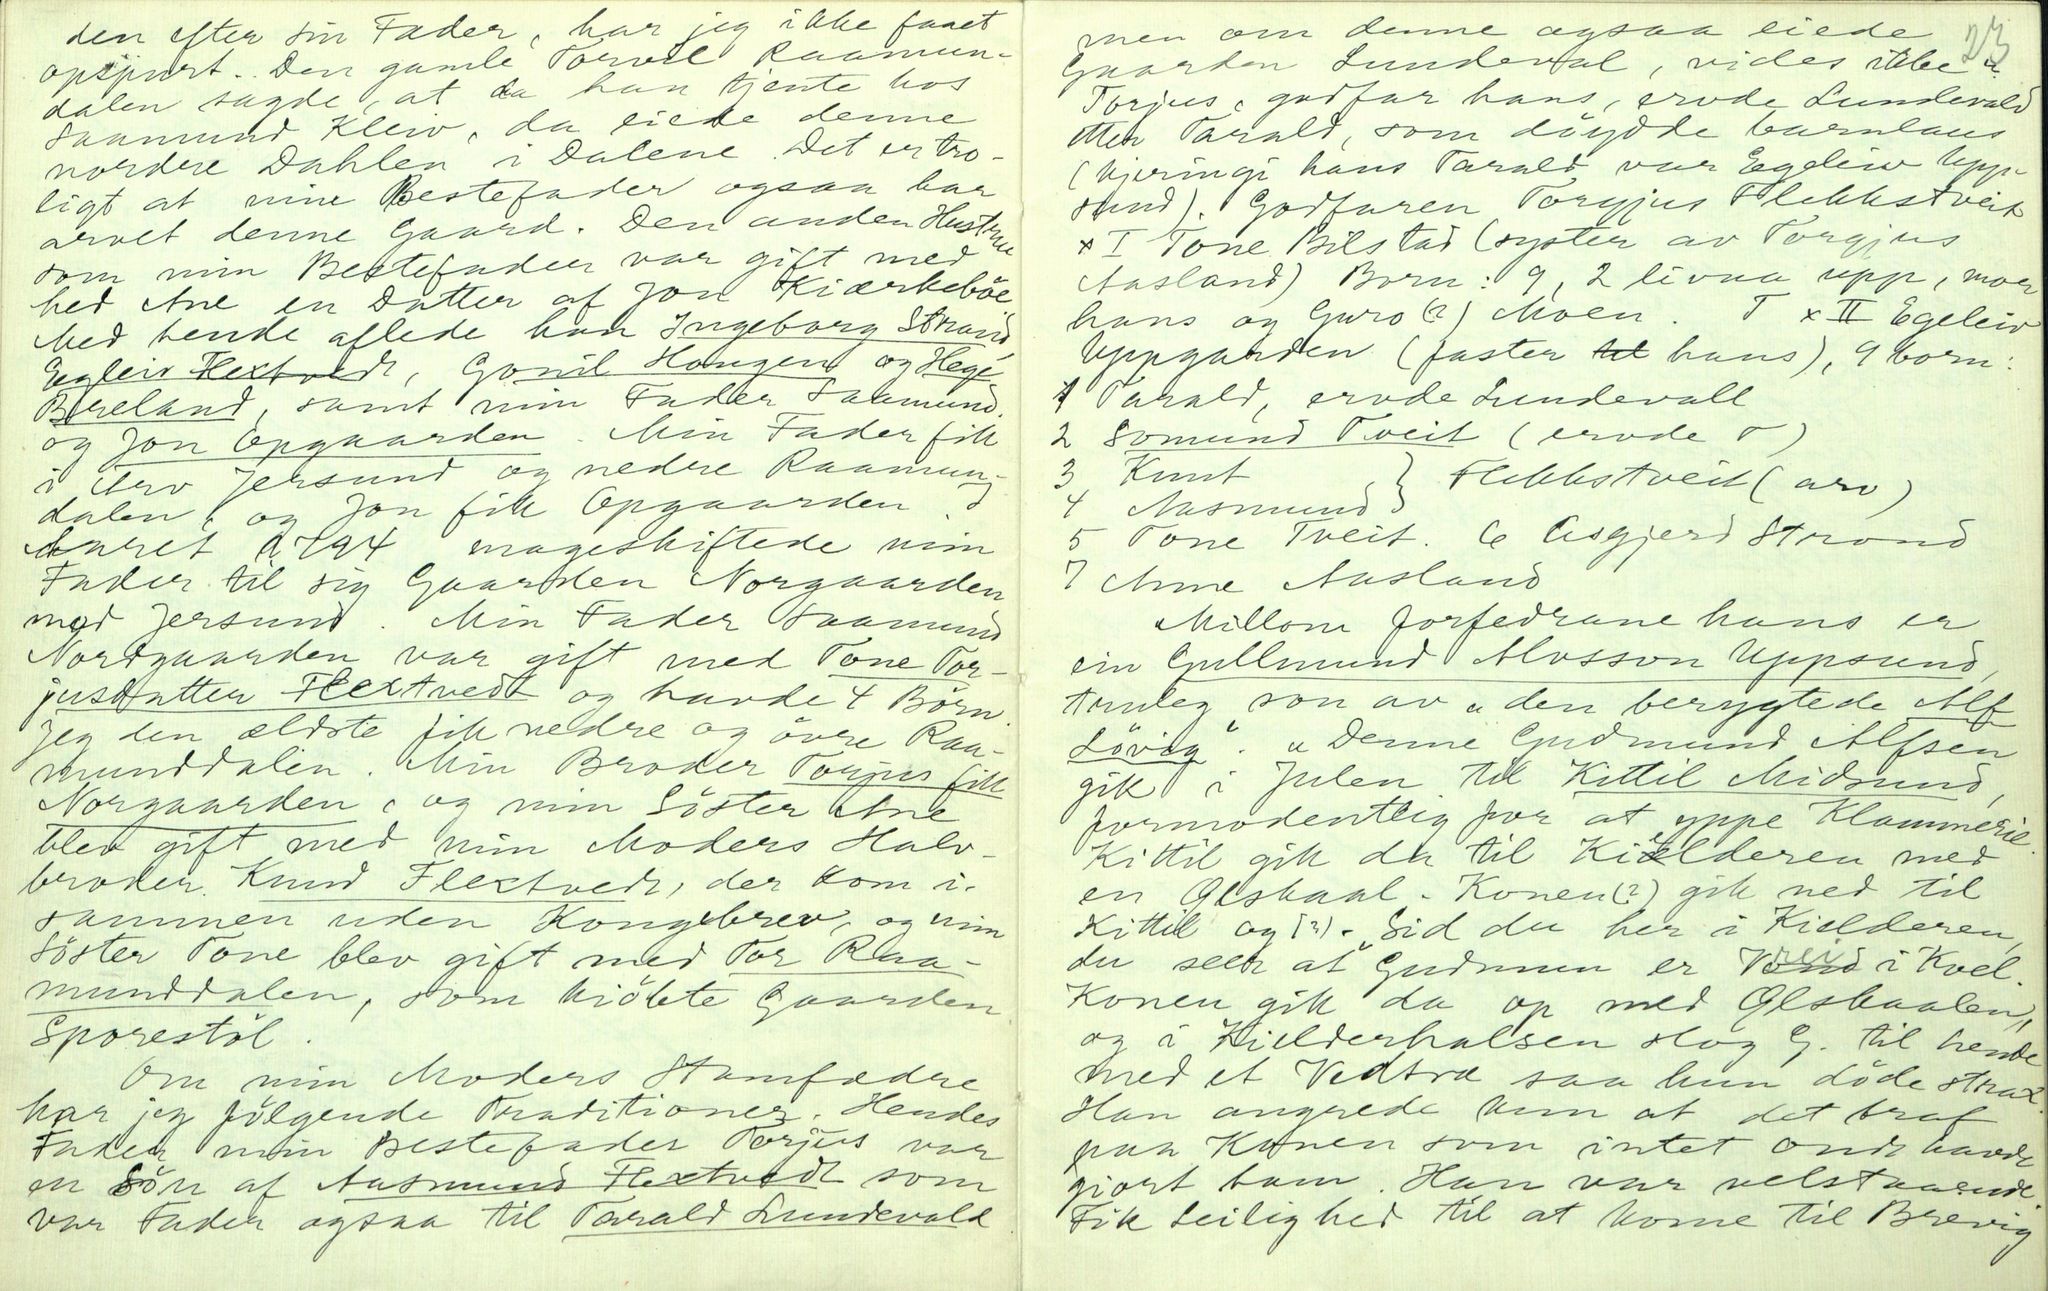 den efter sin Fader, har jeg ikke faaet
opspurt. Den gamle Torvil Raamun-
dalen sagde, at da han tjente hos
Saamund Kleiv, da eiede denne
nordre Dahlen i Dalene. Det er tro-
ligt at mine Bestefader ogsaa har
arvet denne Gaard. Den anden Hustru
som min Bestefader var gift med
hed Ane en Datter af Jon Kiærkebøe
Med hende aflede han Ingeborg Strand,
Egleiv Flextvedt, Gonil Haugen og Hege
Breland, samt min Fader Saamund
og Jon Opgaarden. Min Fader fik
i Arv Jersund og nedre Raamun-
dalen, og Jon fik Opgaarden.
Aaret 1794 mageskiftede min
Fader til sig Gaarden Norgaarden
mod Jersund. Min Fader Saamund
Nordgaarden var gift med Tone Tor-
jusdatter Flextvedt og havde 4 Børn.
Jeg den ældste fik nedre og övre Raa-
munddalen. Min Broder Torjus fik
Norgaarden, og min Söster Ane
blev gift med min Moders Halv-
broder Knud Flextvedt, der kom i-
sammen uden Kongebrev, og min
Söster Tone blev gift med Tor Raa-
munddalen, som kiöbte Gaarden
Sporestöl.
Om min Moders Stamfædre
har jeg fölgende Traditioner. Hendes
Fader min Bestefader Torjus var
en Sön af Aasmund Flextvedt som
var Fader ogsaa til Tarald Lundevald
23
men om denne ogsaa eiede
Gaarden Lundeval, vides ikke"
Torjus, godfar hans, ervde Lundevald
etter Tarald, som döydde barnlaus
(kjeringi hans Tarald var Egeleiv Upp-
sund). Godfaren Torgjus Flekkstveit
x I Tone Bilstad (syster av Torgjus
Aasland) Born: 9, 2 livna upp, mor
hans og Guro (?) Moen. T x II Egeleiv
Uppgarden (faster til hans), 9 born:
1 Tarald, ervde Lundevall
2 Somund Tveit (ervde T)
3 Knut } Flekkstveit (arv)
4 Aasmund
5 Tone Tveit. 6 Asgjerd Strond
7 Anne Aasland
Millom forfedrane hans er
ein Gullmund Alvsson Uppsund,
truleg son av "den berygtede Alf
Lövig". "Denne Gudmund Alfsen
gik i Julen til Kittil Midsund,
formodentlig for at yppe Klammerie.
Kittil gik da til Kielderen med
en Ølskaal. Konen (?) gik ned til
Kittil og (?). Sid du her i Kielderen,
du seer at Gudmun er Vond i Kvel.
rei
Konen gik da op med Ølskaalen,
og i Kielderhalsen slog G. til hende
med et Vedtræ saa hun döde strax.
Han angrede kun at det traf
paa Konen som intet ondt havde
giort ham. Han var velstaaende.
Fik Leilighed til at kome til Brevig